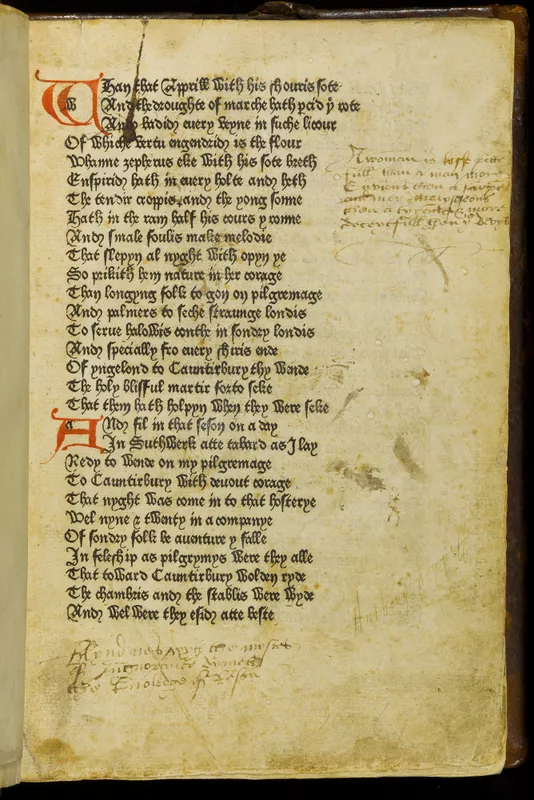 Whan that Apprill with his shouris sote
And the droughte of marche hath p̄cid ẏ rote
And badid euery veyne in suche licour
Of whiche vertu engendrid is the flour
Whanne zephyrus eke with his sote breth
Enspirid hath in euery holte and heth
The tendir croppis and the yong sonne
Hath in the ram half his cours y ronne
And smale foulis make melodie
That slepyn al nyght with opyn ye
So prikith hem nature in her corage
Than longyng folk to gon on pilgremage
And palmers to seche straunge londis
To serue halowis couthe in sondry londis
And specially fro euery shiris ende
Of yngelond to Cauntirbury thy wende
The holy blisful martir forto seke
That them hath holpyn when they were seke
And fil in that seson on a day
In Suthwerk atte tabard as I lay
Redy to wende on my pilgremage
To Cauntirbury with deuout corage
That nyght was come in to that hosterye
Wel nyne & twenty in a companye
Of sondry folk be auenture y falle
In feleship as pilgrymys were they alle
That toward Cauntirbury wolden ryde
The chambris and the stablis were wyde
And wel were they esid atte beste
A woman is
full than a man more
Envious than a
than a more
deceytfull than ẏ devyll